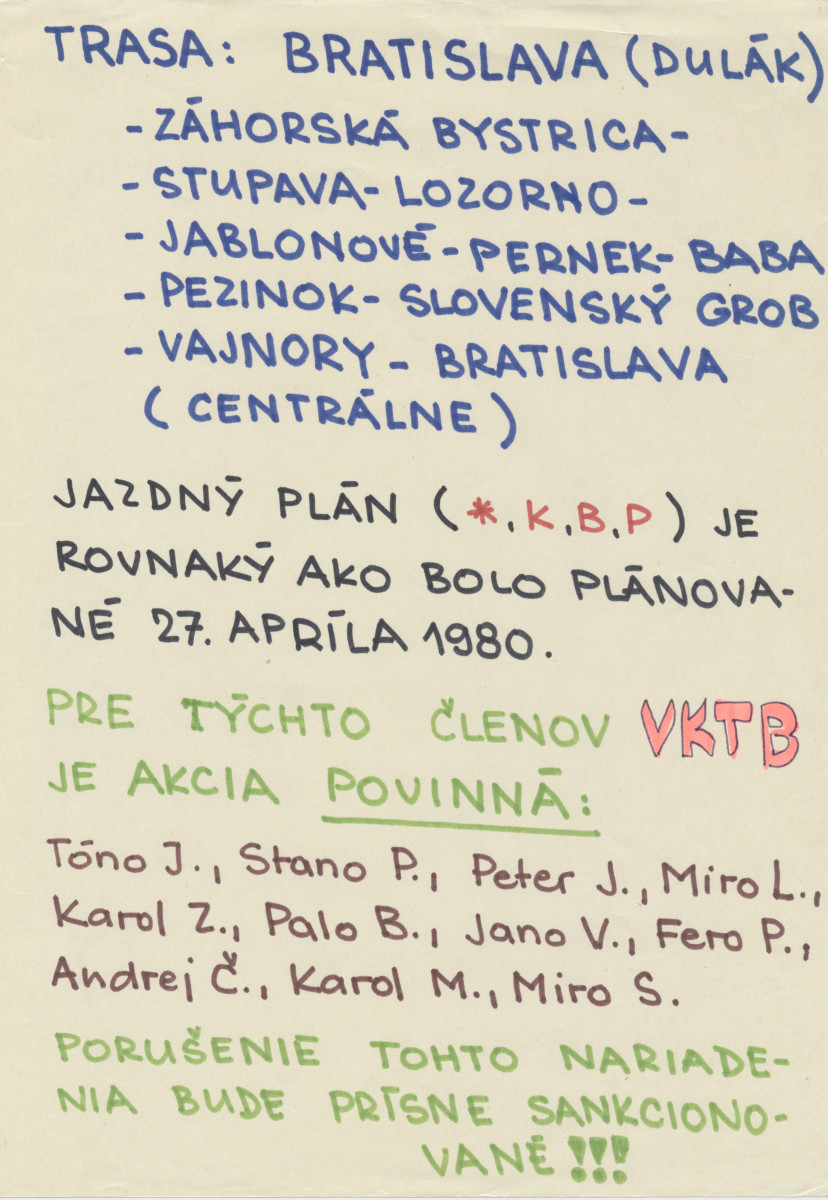 TRASA: BRATISLAVA (DULÁK)
- ZÁHORSKÁ BYSTRICA -
- STUPAVA - LOZORNO -
- JABLONOVÉ - PERNEK - BABA
- PEZINOK - SLOVENSKÝ GROB
- VAJNORY - BRATISLAVA
(CENTRÁLNE)
JAZDNÝ PLÁN (*, K, B, P) JE
ROVNAKÝ AKO BOLO PLÁNOVA-
NÉ 27. APRÍLA 1980.
PRE TÝCHTO ČLENOV VKTB
JE AKCIA POVINNÁ:
Tóno J., Stano P., Peter J., Miro L.,
Karol Z., Palo B., Jano V., Fero P.,
Andrej Č., Karol M., Miro S.
PORUŠENIE TOHTO NARIADE-
NIA BUDE PRÍSNE SANKCIONO-
VANÉ !!!